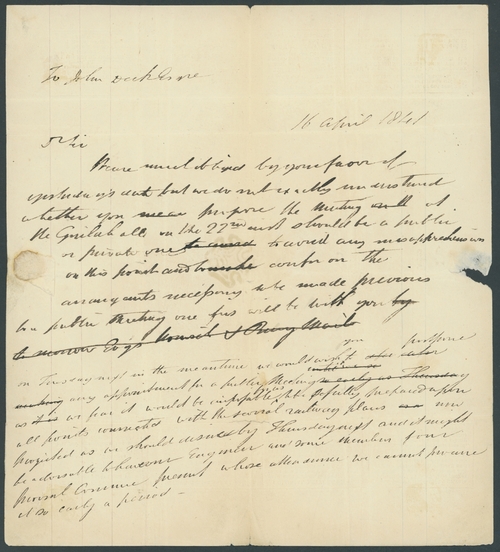 To John
16 April 1841
D Sir
We are much obliged by your favor of
yesterday's date but we do not exactly understand
whether you mean propose the meeting at
the Guildhall on the 22nd inst should be a public
or private one to avoid any misapprehension
on this point and to confer on the
arrangements necessary to be made previous
to a public Meeting one of us will be with you by
to morrow
on Tuesday next in the meantime we would you postpone
any appointment for a public Meeting so early as Thursday
as we fear it would be impossible to be fully prepared upon
all points connected with the several railway plans now
projected as we should desire by Thursday next and it might
be advisable to have our Engineer and some members of our
Provisional Committee present whose attendance we cannot procure
at so early a period –